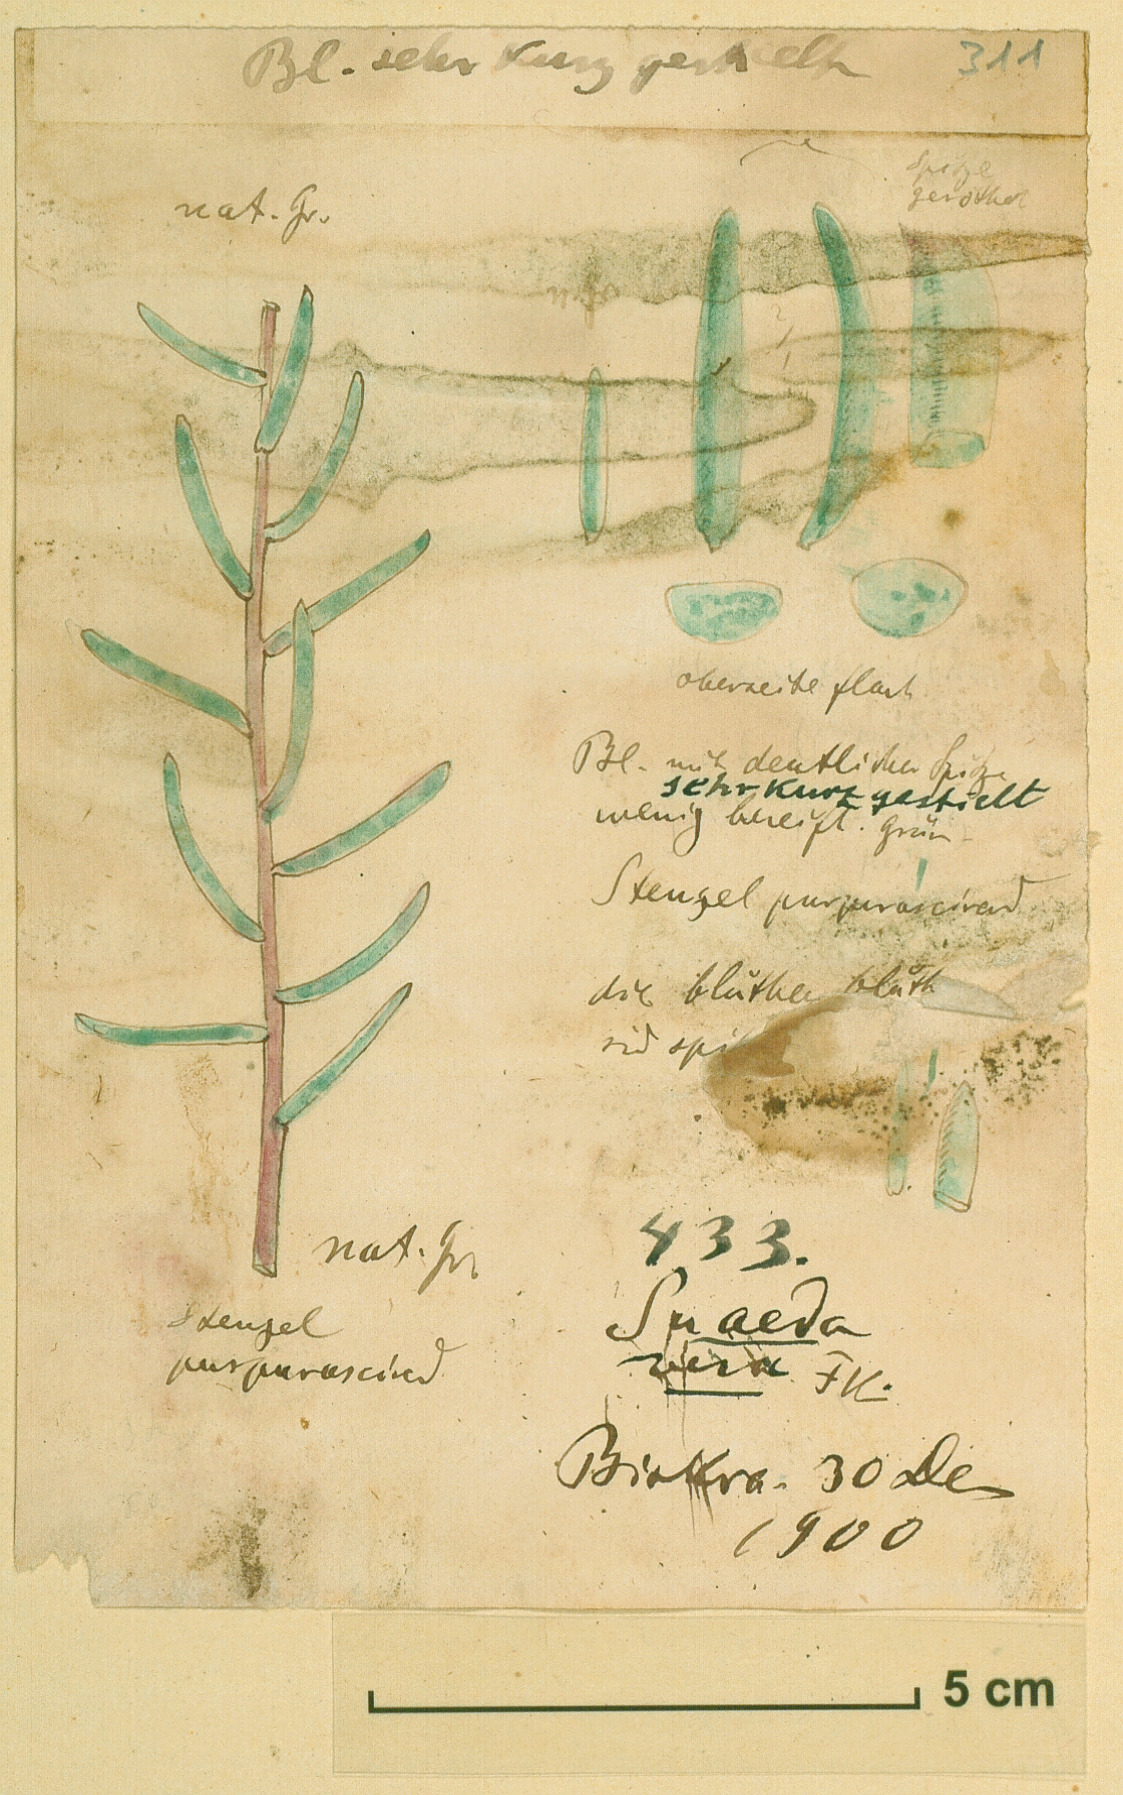 Bl. sehr kurz gestielt
311
nat. Gr.
Spitze
geröthet
oberseite flach
Bl. mit deutlicher Spitze
sehr kurz gestielt
wenig bereift. grün
Stengel purpurascired
die blüthen
sid
nat. Gr.
Stengel
purpurascired
433.
Suaeda
vera FK.
Biskra. 30 Dec
1900
5 cm